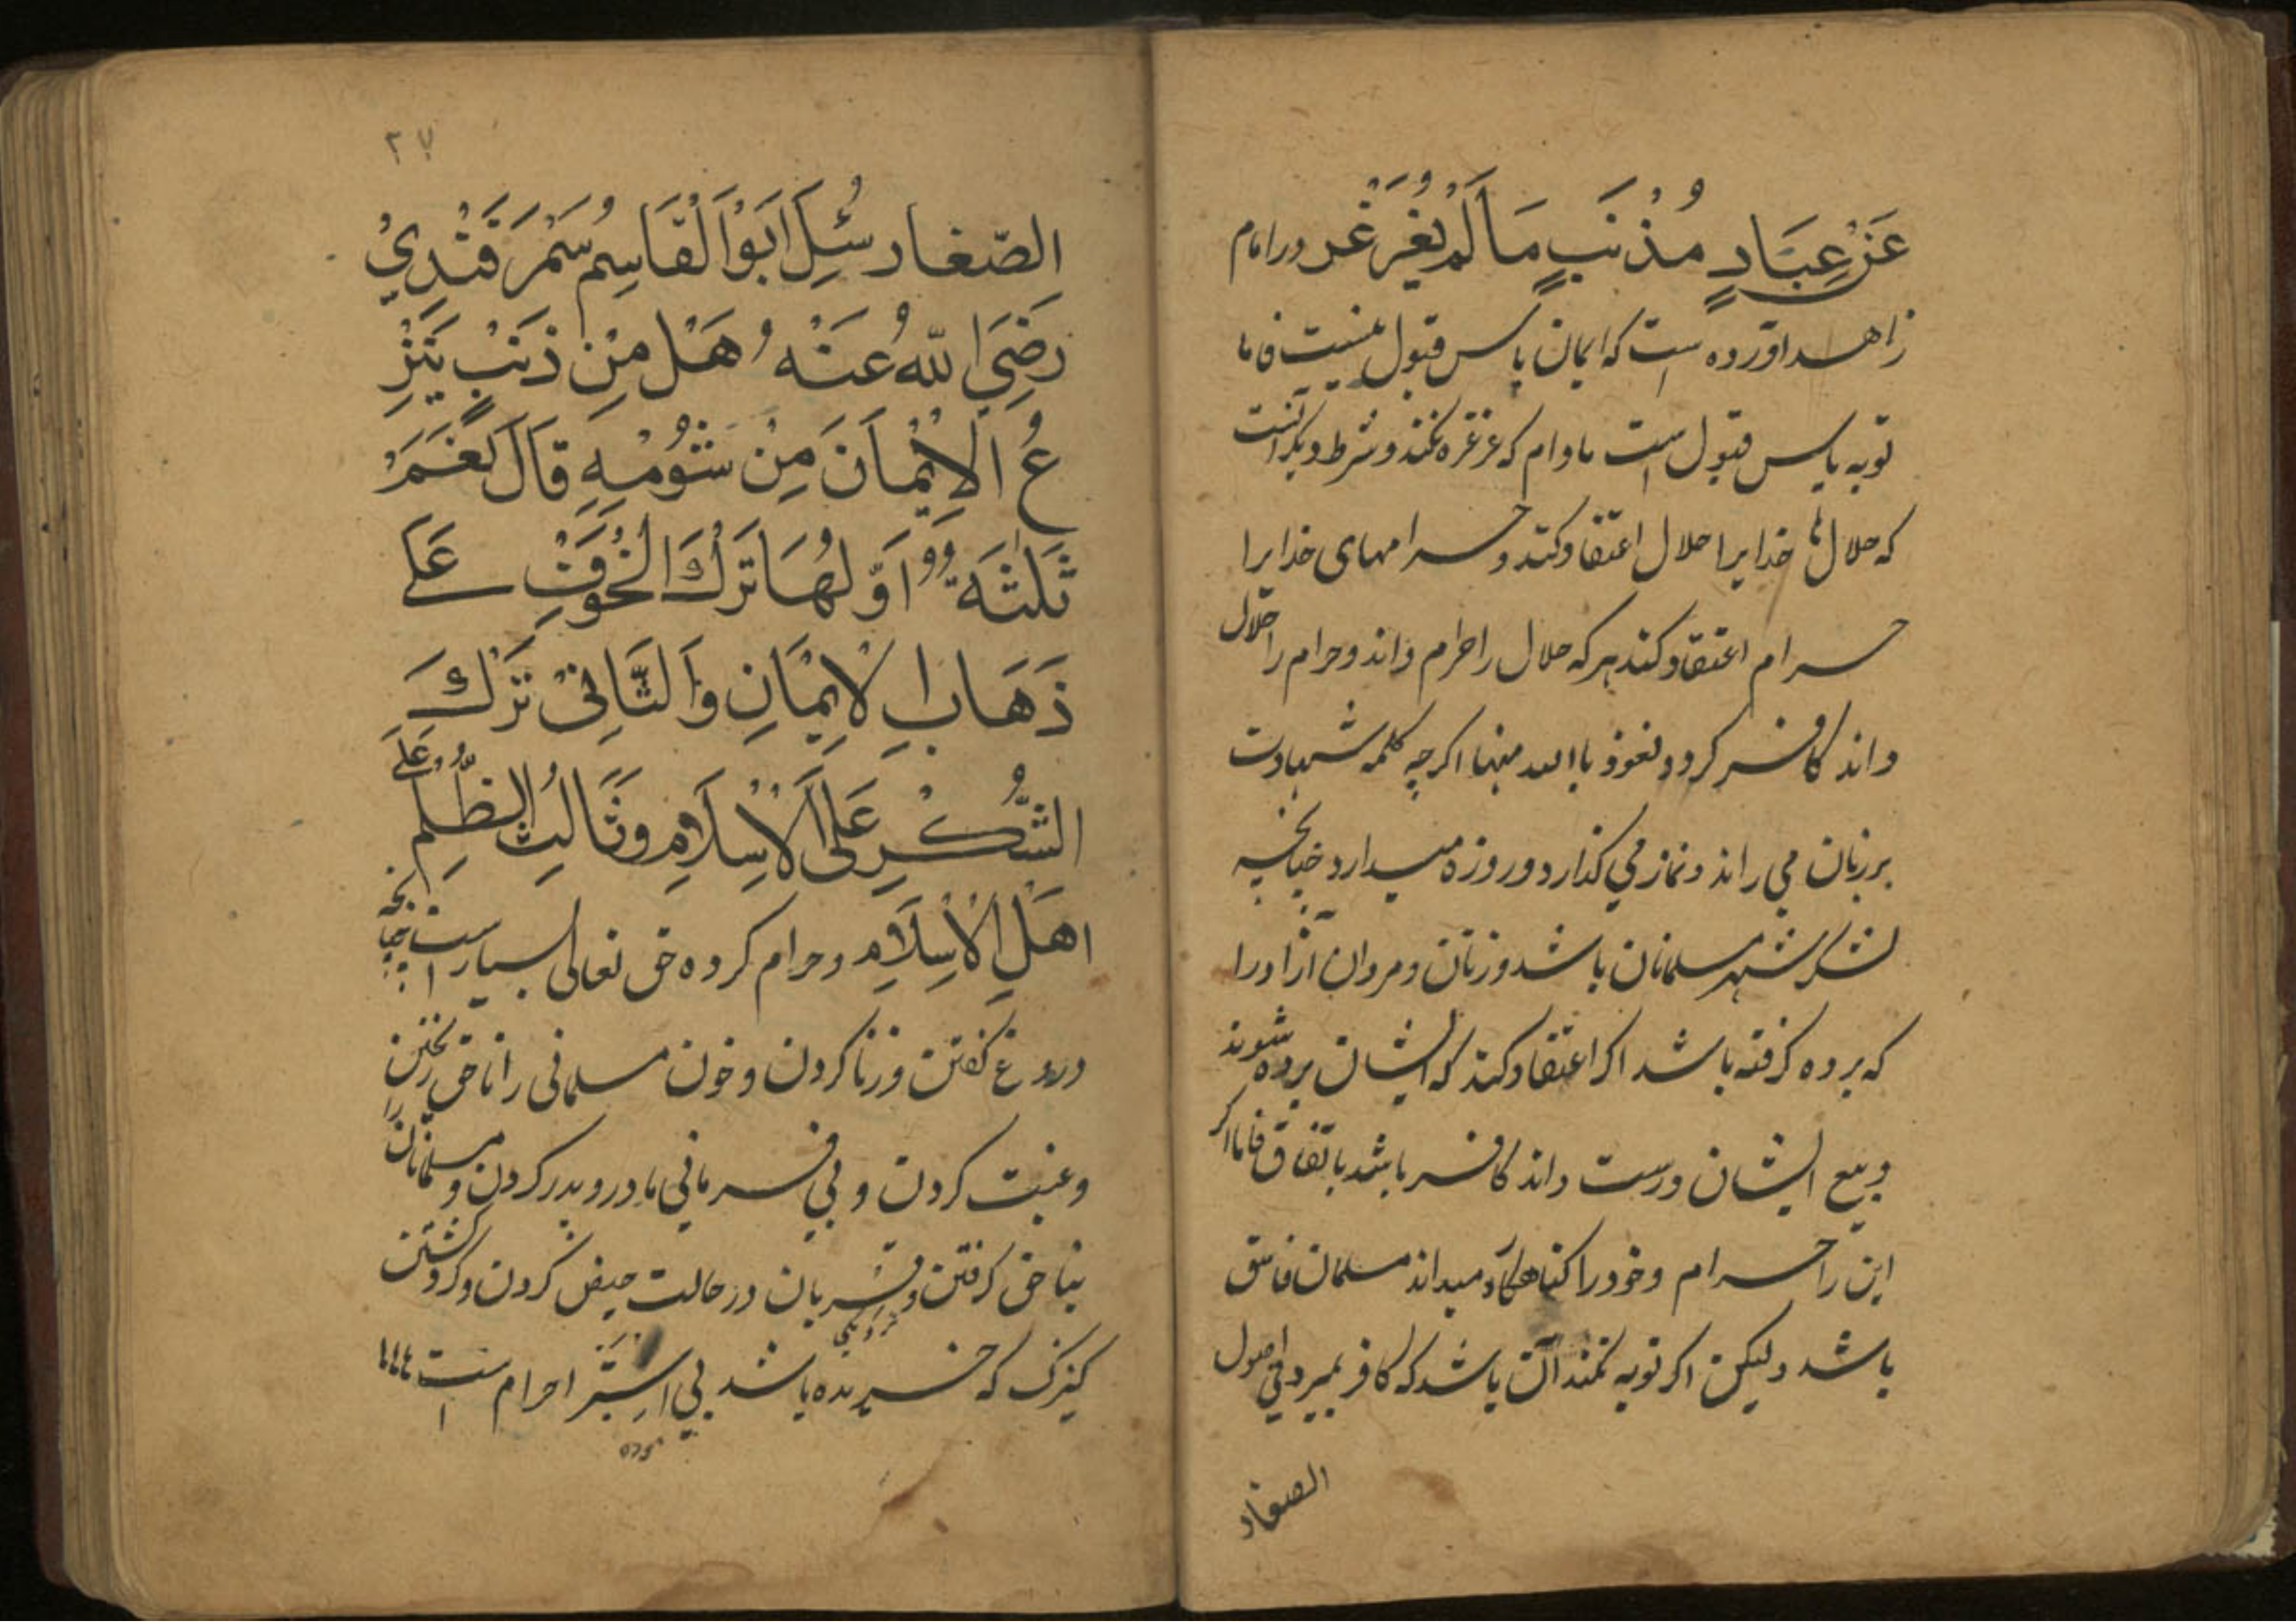 عَنْ عِبَادٍ مُذْنَبٍ مَا لَمْ يُغَرْغَر در امام
زاهد اورده است که ایمان یاس قبول نیست فاما
توبه یاس قبول است مادام که غرغره نکند و شرط دیکر انست
که حلال ها خدایرا حلال اعتقاد کند و حرامهای خدایرا
حرام اعتقاد کند هرکه حلال را حرام داند و حرام را حلال
داند کافر کردد نعوذ باالله منها اکرچه کلمه شهادت
بر زبان می راند و نماز می کذارد و روزه میدارد چنانچه
لشکر شهر مسلمانان باشد و زنان و مردان آزاد را
که برده کرفته باشد اکر اعتقاد کند که ایشان برده شوند
و بیع ایشان درست داند کافر باشد باتفاق فاما اکر
این را حرام و خود را کناهکار میداند مسلمان فاسق
باشد ولیکن اکر توبه نکند آن باشد که کافر بمیرد فی اصول
الصفار
۲۷
الصّفار سُئِلَ اَبَوْا لْقَاسِم سَمْرَقَنْدِيْ
رَضِيَ اللّٰهُ عَنْهُ هَلْ مِنْ ذَنَبٍ يَنْزِ
عُ الْاِيْمَانَ مِنْ شُوْمِهِ قَالَ نَعَمْ
ثَلٰثَةٌ اَوَّلُهَا تَرْكُ الْخُوْفِ عَلَى
ذَهَابِ الْاِيْمَانِ وَالثَّانِىْ تَرْكُ
الشُّكْرِ عَلَى الْاِسْلَامِ وَثَالِثُ الظُّلْمِ عَلَى
اهَلِ الْاِسْلَامِ و حرام کرده حق تعالی بسیار است چنانچه
دروغ کفتن و زنا کردن و خون مسلمانی را ناحق ریختن
و غیبت کردن و بی فرمانی مادر و پدر کردن و مسلمانان را
بناحق کرفتن و قربان در حالت حیض کردن و کرد کشتن
نزدیکی
کنیزک که خریده باشد بی استبرا حرام است